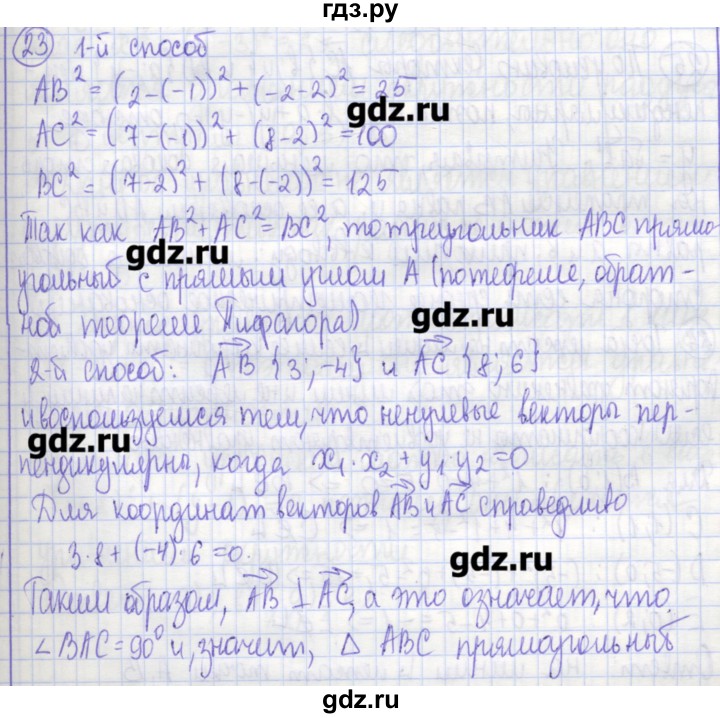 гдз.ру
23 1-й способ
AB² = (2-(-1))² + (-2-2)² = 25
gdz.ru
AC² = (7-(-1))² + (8-2)² = 100
BC² = (7-2)² + (8-(-2))² = 125
Так как AB² + AC² = BC², то треугольник ABC прямо
gdz.ru
угольный с прямым углом A (по теореме, обрат-
ной теореме Пифагора)
gdz.ru
2-й способ: AB {3; -4} и AC {8; 6}
и воспользуемся тем, что ненулевые векторы пер-
gdz.ru
пендикулярны, когда x₁·x₂ + y₁·y₂ = 0
Для координат векторов AB и AC справедливо
3·8 + (-4)·6 = 0.
gdz.ru
Таким образом, AB ⊥ AC, а это означает, что
∠BAC = 90° и, значит, △ ABC прямоугольный
gdz.ru